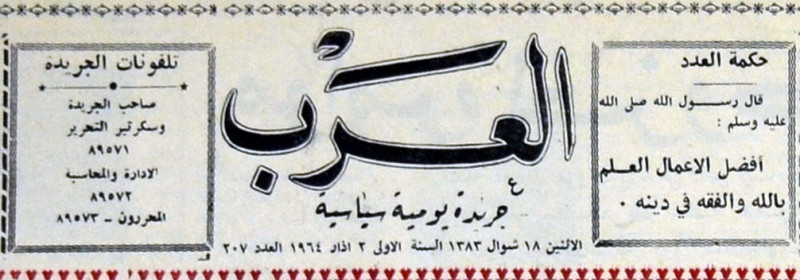 حكمة العدد
قال رســـول الله صلى الله
عليه وسلم :
أفضل الاعمال العـلم
بالله والفقه في دينه .
العرب
جريدة يومية سياسية
الاثنين ١٨ شوال ١٣٨٣ السنة الاولى ٢ اذار ١٩٦٤ العدد ٢٠٧
تلفونات الجريدة
صاحب الجريدة
وسكرتير التحرير
٨٩٥٧١
الادارة والمحاسبة
٨٩٥٧٢
المحررون - ٨٩٥٧٣